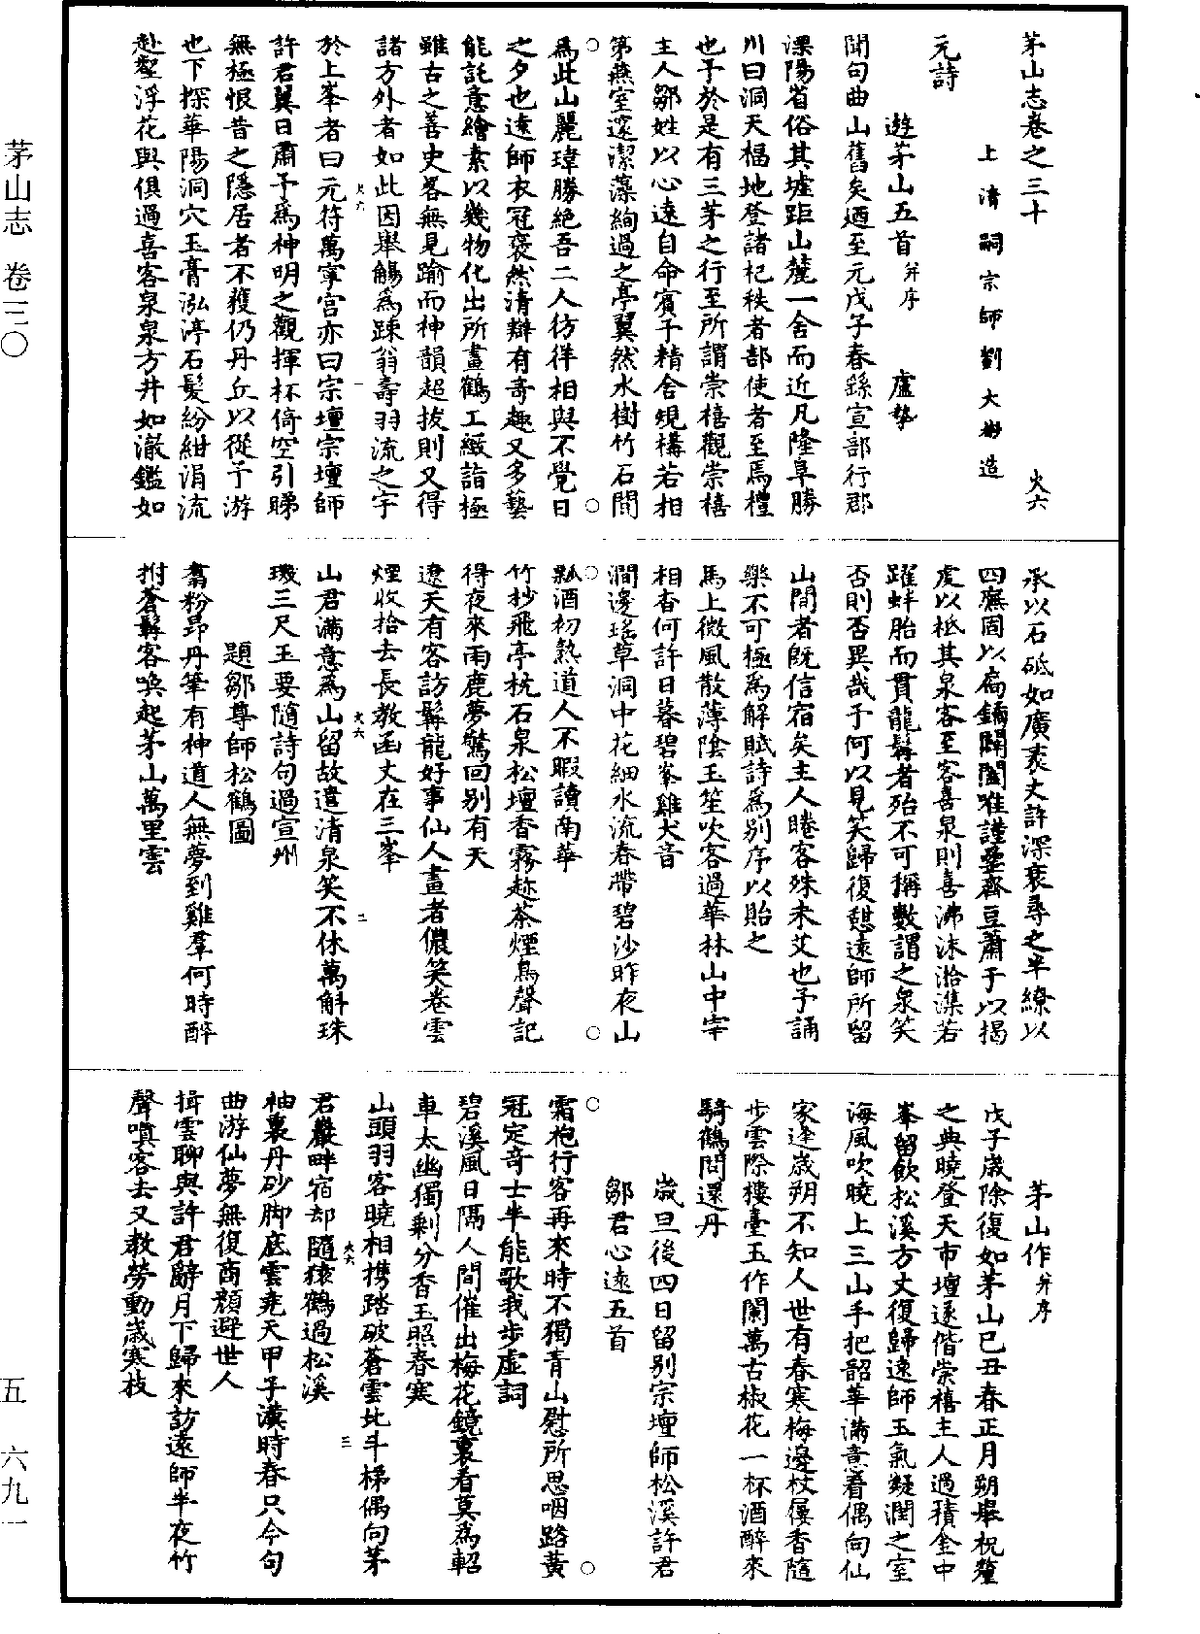 茅山志卷之三十　火六
上清嗣宗師劉大彬造
元詩
遊茅山五首并序　盧摯
聞句曲山舊矣迺至元戊子春繇宣部行郡
溧陽省俗其墟距山麓一舍而近凡隆阜勝
川曰洞天楅地登諸杞秩者部使者至焉禮
也予於是有三茅之行至所謂崇禧觀崇禧
主人鄒姓以心遠自命賓予精舍規構若相
第燕室邃潔藻絢過之亭翼然水樹竹石間
為此山麗瑋勝絕吾二人彷徉相與不覺日
之夕也遠師衣冠褒然清辯有奇趣又多藝
能託意繪素以幾物化出所畫鶴工緻詣極
雖古之善史畧無見踰而神韻超拔則又得
諸方外者如此因舉觴為踈翁壽羽流之宇
於上峯者曰元符萬寧宮亦曰宗壇宗壇師
許君翼日肅予為神明之觀揮杯倚空引睇
無極恨昔之隱居者不獲仍丹丘以從予游
也下探華陽洞穴玉膏泓渟石髮紛紺涓流
赴壑浮花與俱過喜客泉泉方井如澈鑑如
承以石砥如廣袤丈許深衰尋之半繚以
四廡固以扃鐍闢闔唯謹壘齋豆蕭于以揭
虔以柢其泉客至客喜泉則喜沸沫潝潗若
躍蚌胎而貫龍髯者殆不可稱數謂之泉笑
否則否異哉予何以見笑歸復憩遠師所留
山間者既信宿矣主人睠客殊未艾也予誦
樂不可極為解賦詩為別序以貽之
馬上微風散薄陰玉笙吹客過華林山中宰
相杳何許日暮碧峯雞犬音
澗邊瑤草洞中花細水流春帶碧沙昨夜山
瓢酒初熟道人不暇讀南華
竹杪飛亭枕石泉松壇香霧趂茶煙鳥聲記
得夜來雨鹿夢驚回別有天
遼天有客訪髯龍好事仙人畫者儂笑卷雲
煙收拾去長教函丈在三峯
山君滿意為山留故遣清泉笑不休萬斛珠
璣三尺玉要隨詩句過宣州
題鄒尊師松鶴圖
翥粉昂丹筆有神道人無夢到雞羣何時醉
拊蒼髯客喚起茅山萬里雲
茅山作并序
戊子歲除復如茅山巳丑春正月朔舉祝釐
之典曉登天市壇遂偕崇禧主人過積金中
峯留飲松溪方丈復歸遠師玉氣凝潤之室
海風吹曉上三山手把韶華滿意看偶向仙
家逢歲朔不知人世有春寒梅邊杖屨香隨
步雲際樓臺玉作闌萬古椒花一杯酒醉來
騎鶴問還丹
歲旦後四日留別宗壇師松溪許君
鄒君心遠五首
霜袍行客再來時不獨青山慰所思咽路黃
冠定奇士半能歌我步虛詞
碧溪風日隔人間催出梅花鏡裏看莫為軺
車太幽獨剩分香玉照春寒
山頭羽客曉相携踏破蒼雲北斗梯偶向茅
君巖畔宿却隨猿鶴過松溪
袖裏丹砂脚底雲堯天甲子漢時春只今句
曲游仙夢無復商顏避世人
揖雲聊與許君辭月下歸來訪遠師半夜竹
聲嗔客去又教勞動歲寒枝
火六
一
火六
二
火六
三
茅山志　卷三〇
五　六九一